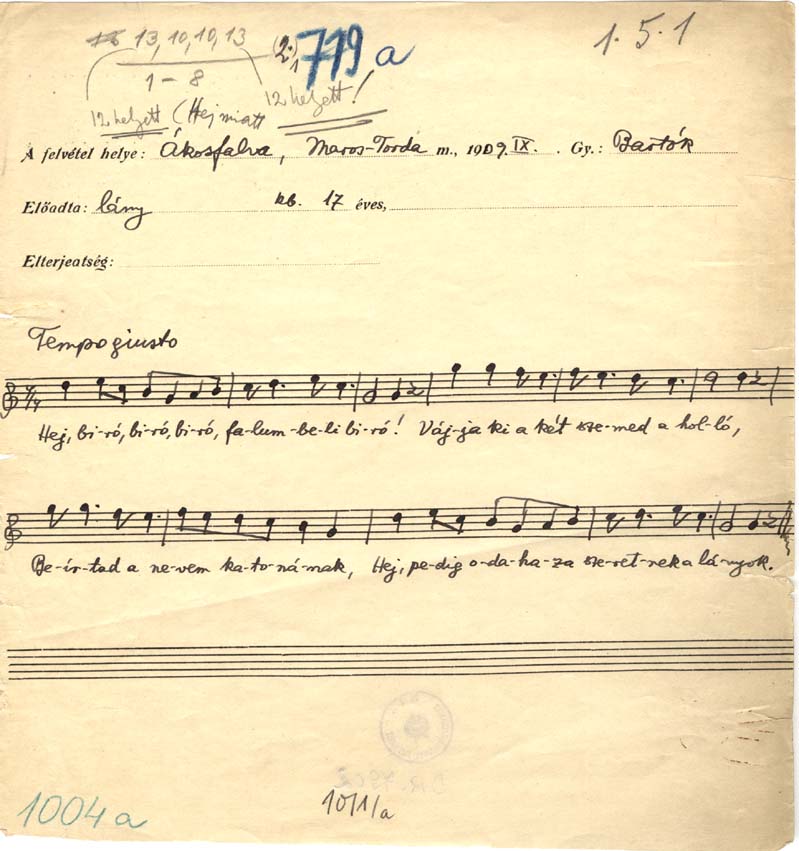 13, 10, 10, 13 (2.) 719 a 1. 5. 1
1 - 8
12 helyett (Hej miatt 12 helyett!
A felvétel helye: Ákosfalva, Maros-Torda m., 1909. IX. Gy.: Bartók
Előadta: lány kb. 17 éves,
Elterjeatség:
Tempo giusto
4/4
Hej, bi-ró, bi-ró, bi-ró, fa-lum-be-li bi-ró! Váj-ja ki a két sze-med a hol-ló,
Be-ír-tad a ne-vem ka-to-ná-nak, Hej, pe-dig o-da-ha-za sze-ret-nek a lá-nyok.
1004 a 10/1/a